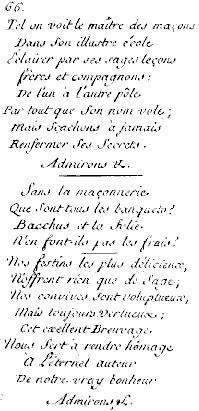 66.
Tel on voit le maître des maçons
Dans Son illustre école
Eclairer par ses sages leçons
frères et compagnons:
De l'un à l'autre pôle
Par tout que Son nom vole;
Mais Scachons à jamais
Renfermer Ses Secrets.
Admirons &.
Sans la maçonnerie
Que Sont tous les banquets?
Bacchus et la folie
N'en font-ils pas les fraix?
Nos festins les plus délicieux,
N'offrent rien que de Sage;
Nos convives Sont voluptueux,
Mais toujours vertueux;
Cet exellent Breuvage
Nous Sert à rendre hômage
A l'éternel auteur
De notre vray bonheur
Admirons &.